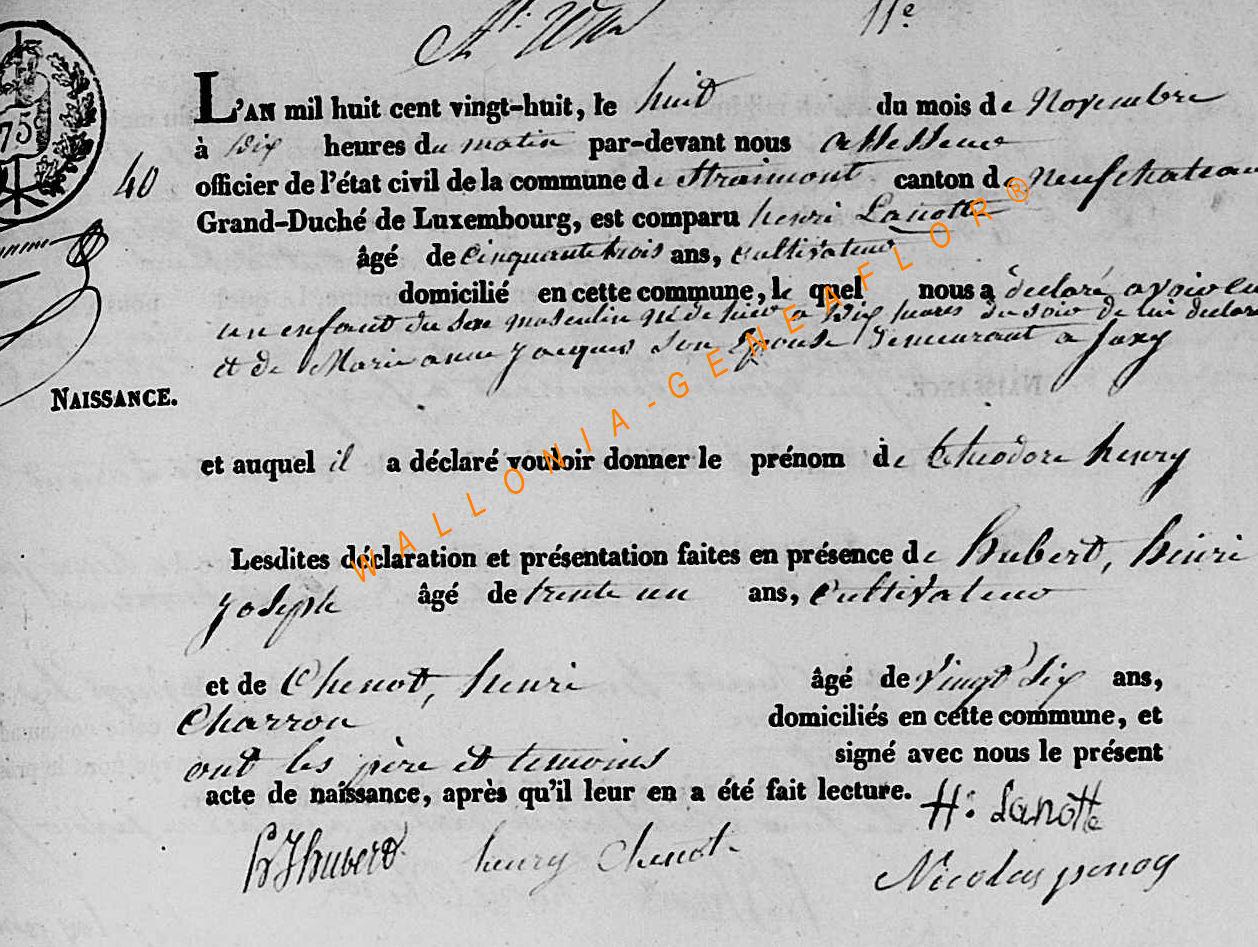 11e
75
40
L'AN mil huit cent vingt-huit, le huit du mois de Novembre
à dix heures du matin par-devant nous assesseur
officier de l'état civil de la commune de Straimont canton de Neufchateau
Grand-Duché de Luxembourg, est comparu henri Lanotte
âgé de cinquante trois ans, cultivateur
domicilié en cette commune, le quel nous a déclaré avoir eu
un enfant du sexe masculin né de hier a dix heures du soir de lui declara
et de Marie anne Jacques son Epouse demeurant a Juxy
NAISSANCE.
et auquel il a déclaré vouloir donner le prénom de théodore henry
Lesdites déclaration et présentation faites en présence de hubert, henri
joseph âgé de trente un ans, cultivateur
et de Chenot, henri âgé de vingt six ans,
Charron domiciliés en cette commune, et
ont les père et temoins signé avec nous le présent
acte de naissance, après qu'il leur en a été fait lecture. H: Lanotte
hJhubert henry Chenot
Nicolas penoy
WALLONIA-GENEAFLOR®